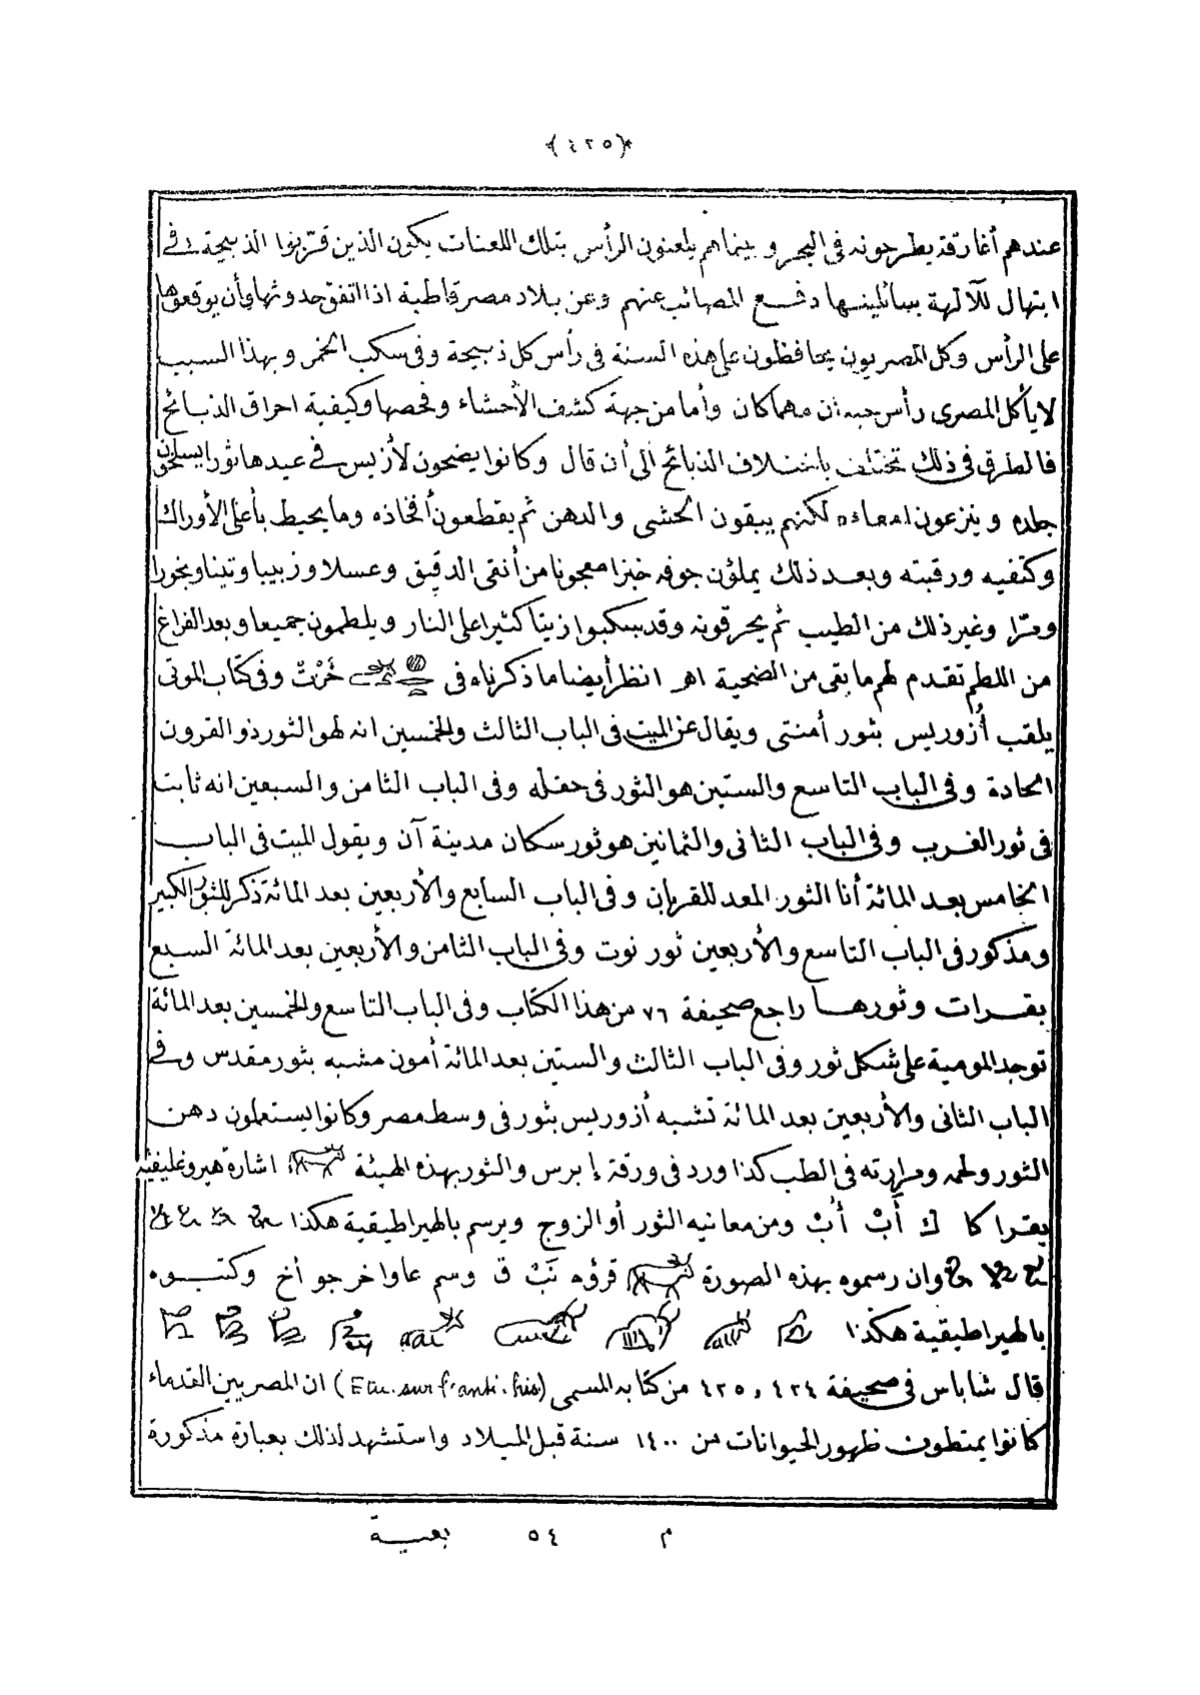 ﴿٤٢٥﴾
عندهم أغارقة يطرحونه فى البحر وبينما هم يلعنون الرأس بتلك اللعنات يكون الذين قرّبوا الذبيحة فى
ابتهال للآلهة سائلينها دفع المصائب عنهم وعن بلاد مصر قاطبة اذا اتفق حدوثها وأن يوقعوها
على الرأس وكل المصريون يحافظون على هذه السنة فى رأس كل ذبيحة وفى سكب الخمر وبهذا السبب
لا يأكل المصرى رأس حيوان مهما كان وأما من جهة كشف الأحشاء وفحصها وكيفية احراق الذبائح
فالطرق فى ذلك تختلف باختلاف الذبائح الى أن قال وكانوا يضحون لأزيس فى عيدها ثورا يسلخون
جلده وينزعون امعاءه لكنهم يبقون الحشى والدهن ثم يقطعون أفخاذه وما يحيط بأعلى الأوراك
وكتفيه ورقبته وبعد ذلك يملؤن جوفه خبزا معجونا من أنقى الدقيق وعسلا وزبيبا وتينا وبخورا
ومرّا وغير ذلك من الطيب ثم يحرقونه وقد سكبوا زيتا كثيرا على النار ويلطمون جميعا وبعد الفراغ
من اللطم تقدم لهم ما بقى من الضحية اهـ انظر أيضا ما ذكرناه فى خَرْتْ وفى كتاب الموتى
يلقب أُزوريس بثور أمنتى ويقال عن الميت فى الباب الثالث والخمسين انه لهو الثور ذو القرون
الحادة وفى الباب التاسع والستين هو الثور فى حقله وفى الباب الثامن والسبعين انه ثابت
فى ثور الغرب وفى الباب الثانى والثمانين هو ثور سكان مدينة آن ويقول الميت فى الباب
الخامس بعد المائة أنا الثور المعد للقربان وفى الباب السابع والأربعين بعد المائة ذكر للثور الكبير
ومذكور فى الباب التاسع والأربعين ثور نوت وفى الباب الثامن والأربعين بعد المائة السبع
بقرات وثورها راجع صحيفة ٧٦ من هذا الكتاب وفى الباب التاسع والخمسين بعد المائة
توجد المومية على شكل ثور وفى الباب الثالث والستين بعد المائة أمون مشبه بثور مقدس وفى
الباب الثانى والأربعين بعد المائة تشبه أزوريس بثور فى وسط مصر وكانوا يستعملون دهن
الثور ولحمه ومرارته فى الطب كذا ورد فى ورقة إبرس والثور بهذه الهيئة اشارة هيروغليفية
يقرا كا ك أَبْ أُبْ ومن معانيه الثور أو الزوج ويرسم بالهيراطيقية هكذا
وان رسموه بهذه الصورة قرؤه نَبْ ق وسم عاوا خر جو أخ وكتبوه
بالهيراطيقية هكذا
قال شاباس فى صحيفة ٤٢٤ و ٤٢٥ من كتابه المسمى (Etu. sur l'anti. his) ان المصريين القدماء
كانوا يمتطون ظهور الحيوانات من ١٤٠٠ سنة قبل الميلاد واستشهد لذلك بعبارة مذكورة
م ٥٤ بغية